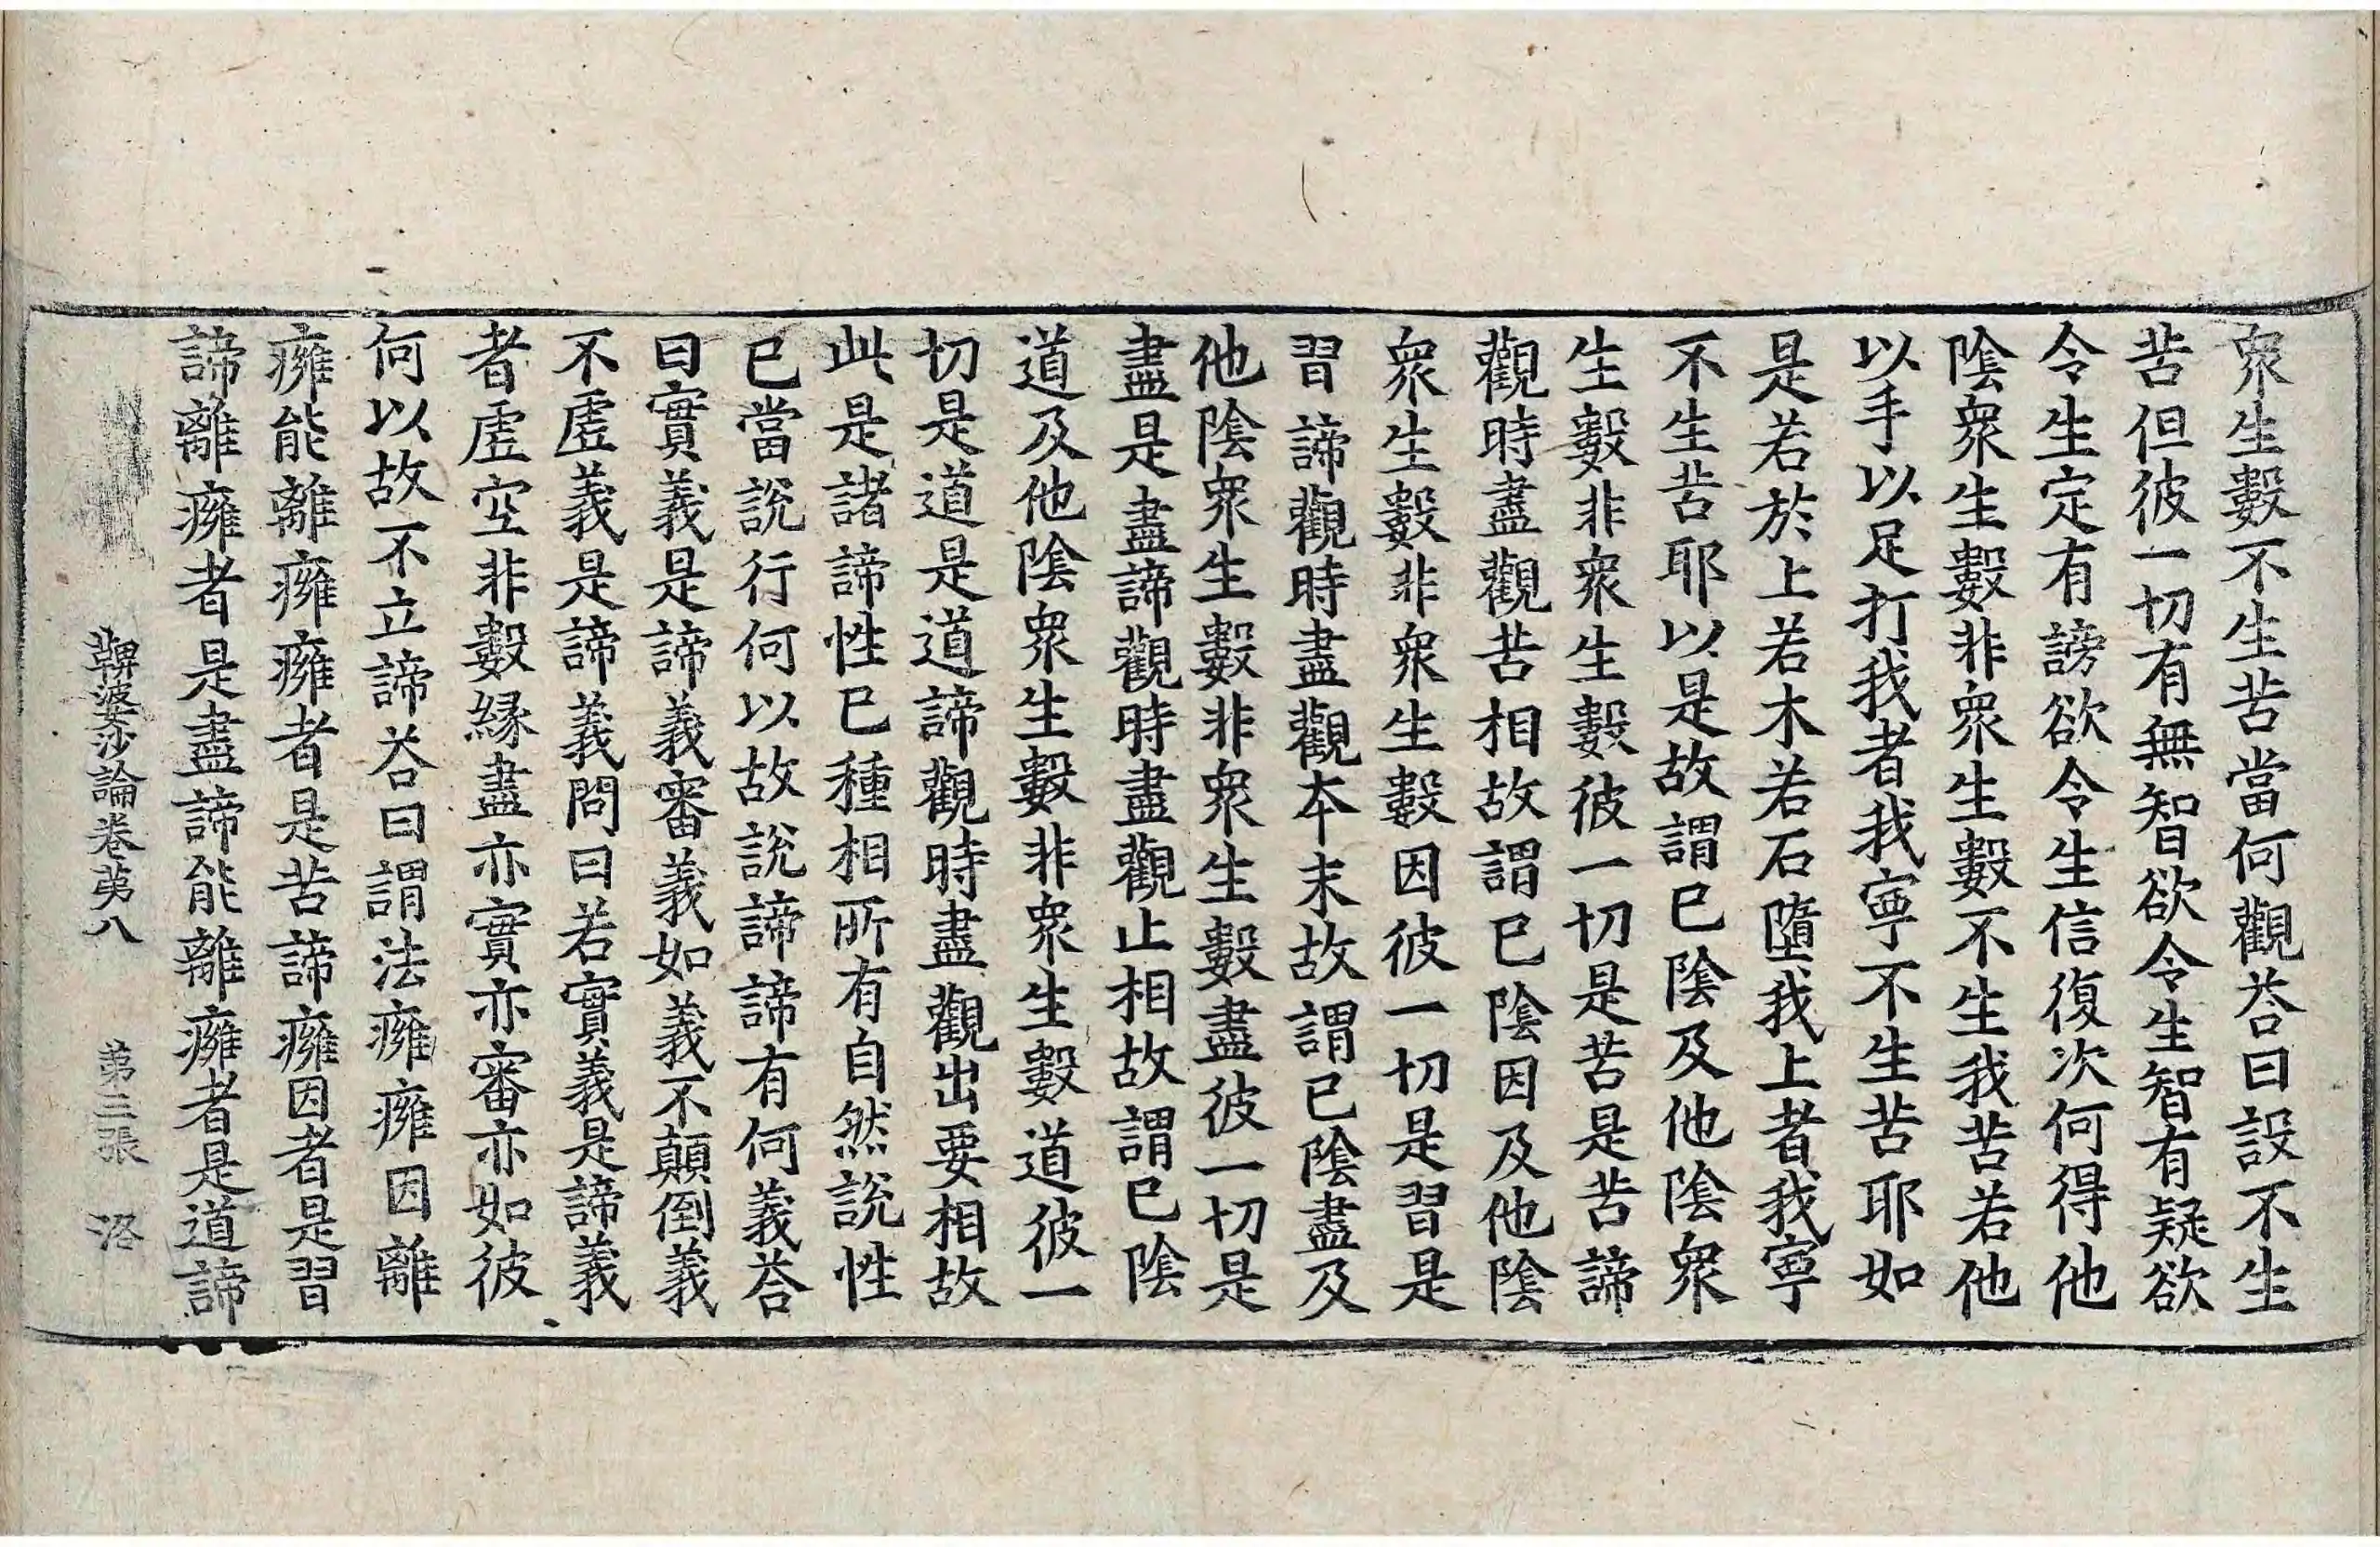 衆生數不生苦當何觀荅曰設不生
苦但彼一切有無智欲令生智有疑欲
令生定有謗欲令生信復次何得他
陰衆生數非衆生數不生我苦若他
以手以足打我者我寧不生苦耶如
是若於上若木若石墮我上者我寧
不生苦耶以是故謂已陰及他陰衆
生數非衆生數彼一切是苦是苦諦
觀時盡觀苦相故謂已陰因及他陰
衆生數非衆生數因彼一切是習是
習諦觀時盡觀本末故謂已陰盡及
他陰衆生數非衆生數盡彼一切是
盡是盡諦觀時盡觀止相故謂已陰
道及他陰衆生數非衆生數道彼一
切是道是道諦觀時盡觀出要相故
此是諸諦性已種相所有自然說性
已當說行何以故說諦諦有何義荅
曰實義是諦義審義如義不顛倒義
不虛義是諦義問曰若實義是諦義
者虛空非數緣盡亦實亦審亦如彼
何以故不立諦荅曰謂法癰癰因離
癰能離癰癰者是苦諦癰因者是習
諦離癰者是盡諦能離癰者是道諦
鞞婆沙論卷苐八 苐三張 洛